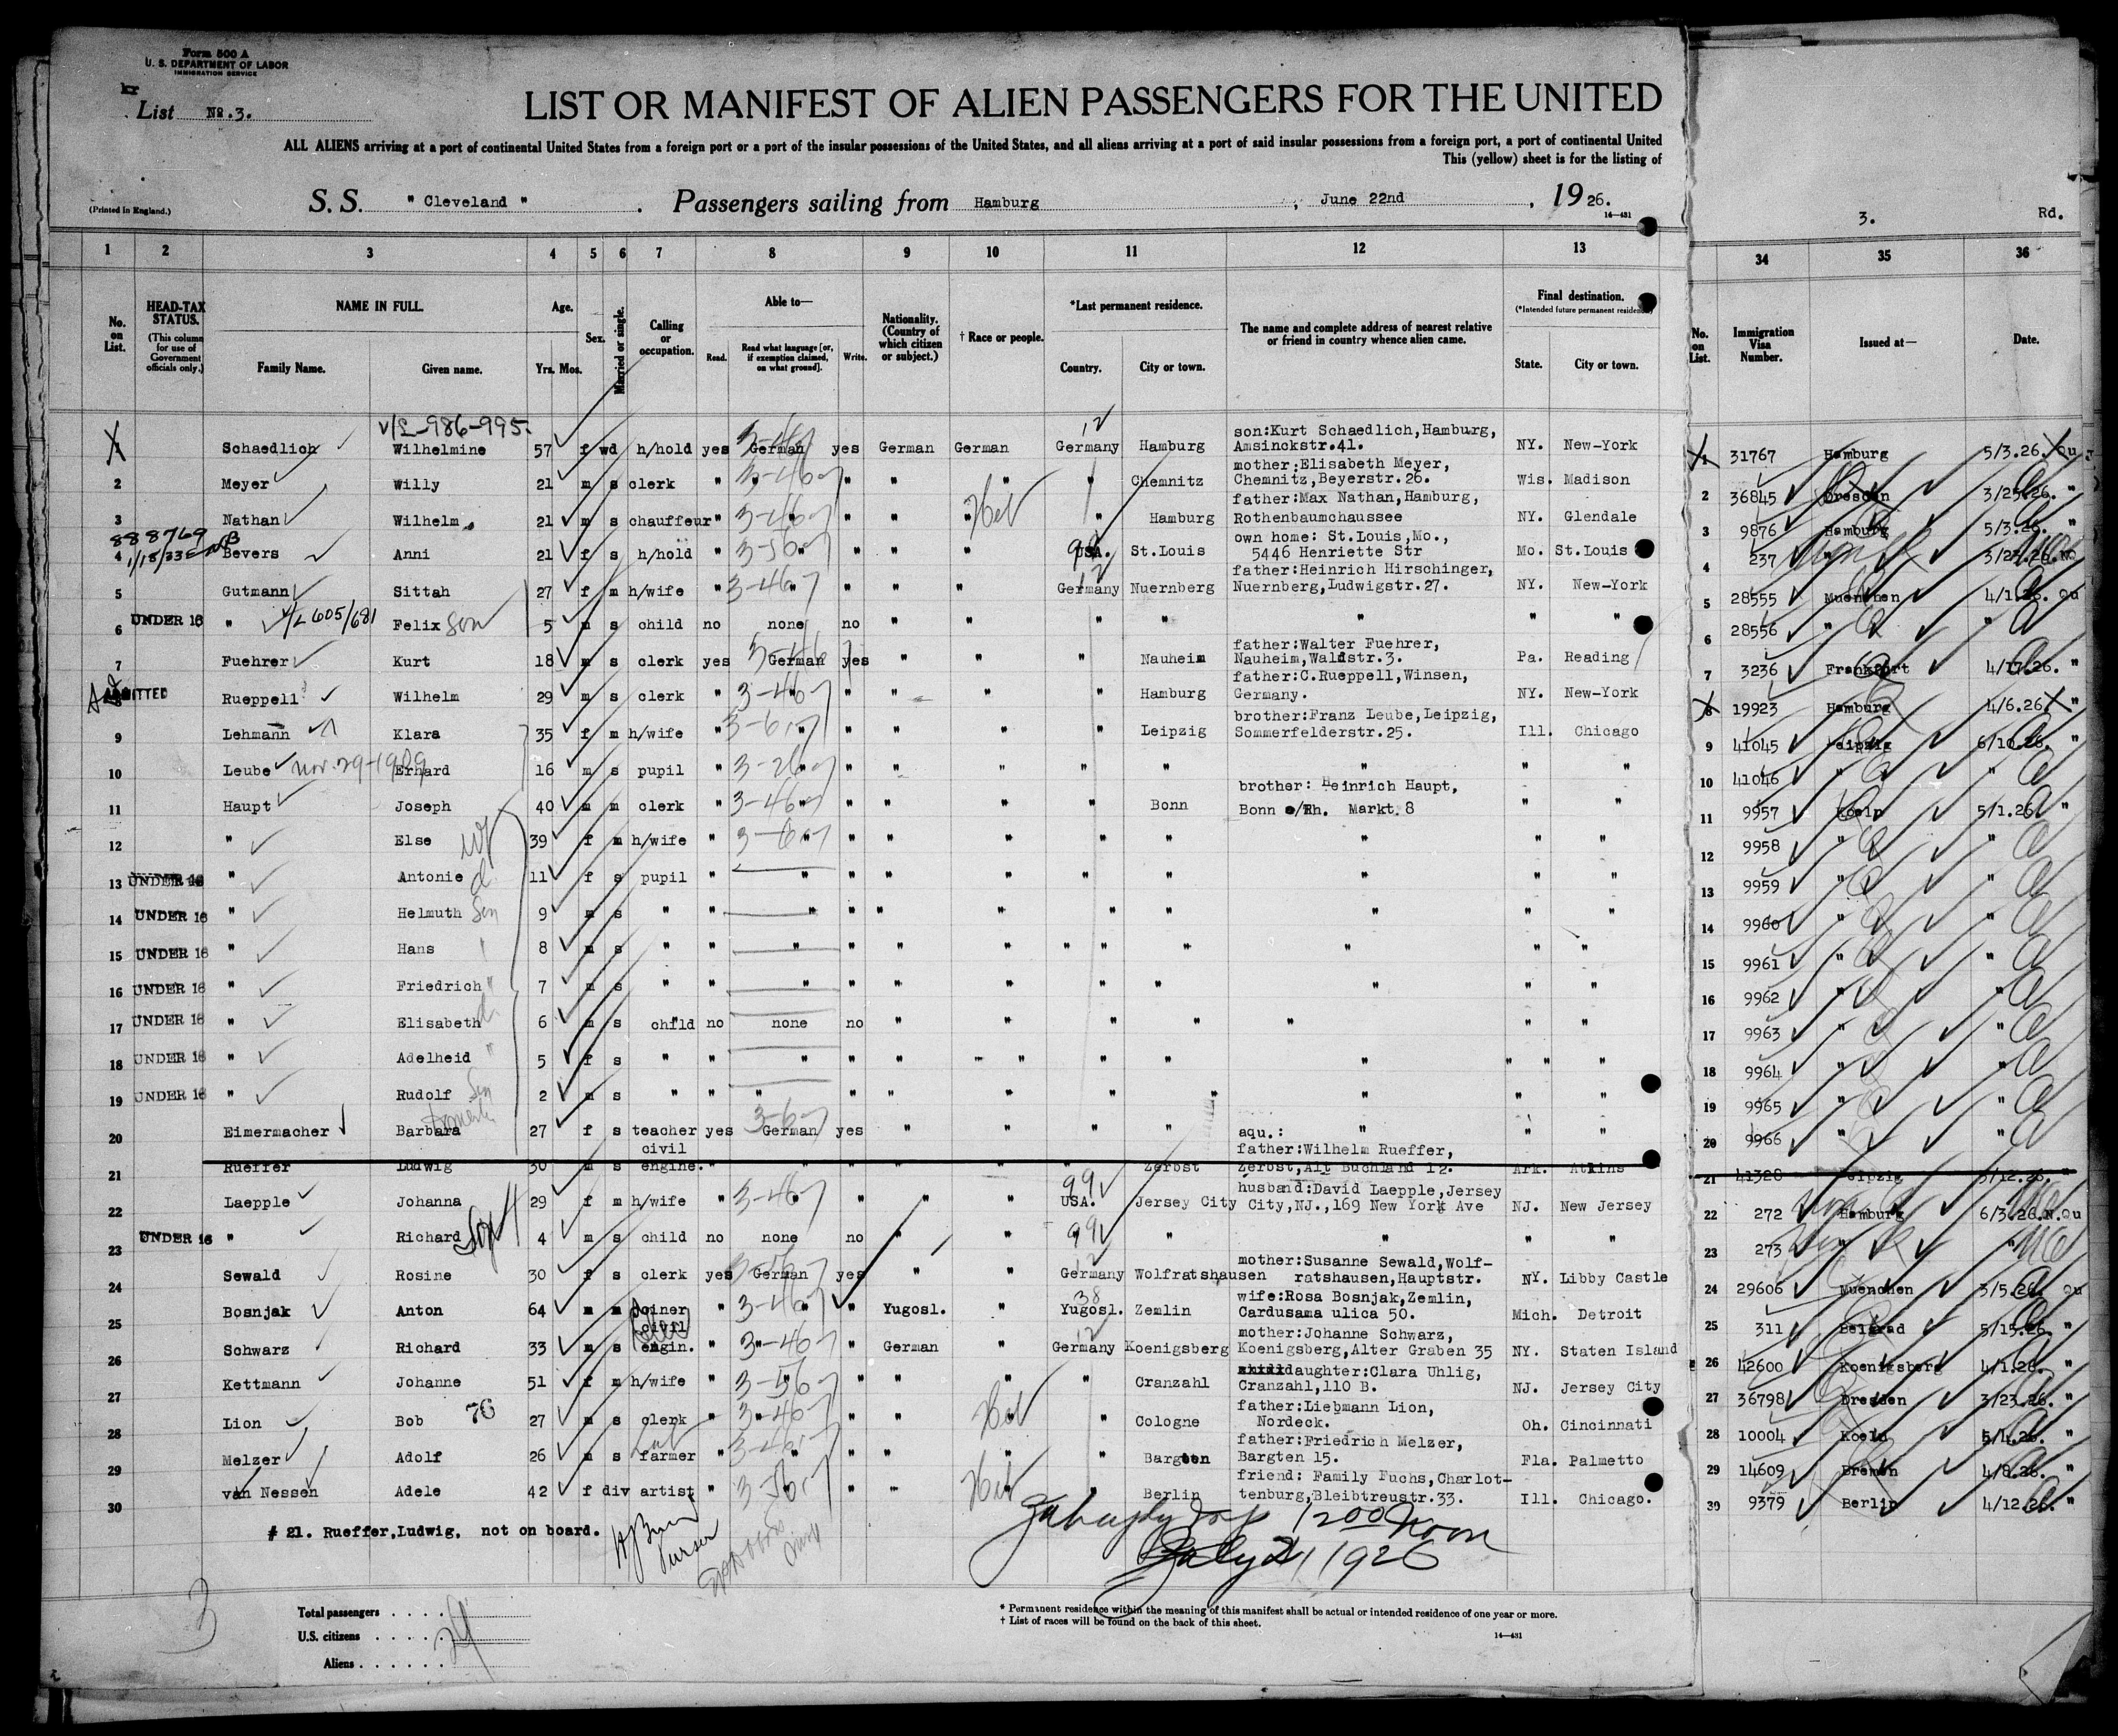 Form 500 A
U. S. DEPARTMENT OF LABOR
IMMIGRATION SERVICE
List No. 3.
LIST OR MANIFEST OF ALIEN PASSENGERS FOR THE UNITED
ALL ALIENS arriving at a port of continental United States from a foreign port or a port of the insular possessions of the United States, and all aliens arriving at a port of said insular possessions from a foreign port, a port of continental United
This (yellow) sheet is for the listing of
(Printed in England.)
S. S. " Cleveland " . Passengers sailing from Hamburg , June 22nd , 19 26.
14—431
3. Rd.
1 2 3 4 5 6 7 8 9 10 11 12 13 34 35 36
No. on List.
HEAD-TAX STATUS.
(This column for use of Government officials only.)
NAME IN FULL.
Family Name. Given name.
Age.
Yrs. Mos.
Sex.
Married or single.
Calling or occupation.
Able to—
Read. Read what language [or, if exemption claimed, on what ground]. Write.
Nationality. (Country of which citizen or subject.)
† Race or people.
*Last permanent residence.
Country. City or town.
The name and complete address of nearest relative or friend in country whence alien came.
Final destination.
(*Intended future permanent residence)
State. City or town.
No. on List.
Immigration Visa Number.
Issued at—
Date.
V/L-986-995.
Schaedlich Wilhelmine 57 f wd h/hold yes German yes German German Germany Hamburg son:Kurt Schaedlich,Hamburg, Amsinckstr.41. NY. New-York 31767 Hamburg 5/3.26. Qu
2 Meyer Willy 21 m s clerk " " " " " " Chemnitz mother:Elisabeth Meyer, Chemnitz,Beyerstr.26. Wis. Madison 2 36845 Dresden 3/25.26. "
3 Nathan Wilhelm 21 m s chauffeur " " " " " " Hamburg father:Max Nathan,Hamburg, Rothenbaumchaussee NY. Glendale 3 9876 Hamburg 5/3.26. "
888769
4 Bevers Anni 21 f s h/hold " " " " " USA. St.Louis own home: St.Louis,Mo., 5446 Henriette Str Mo. St.Louis 4 237 "
5 Gutmann Sittah 27 f m h/wife " " " " " Germany Nuernberg father:Heinrich Hirschinger, Nuernberg,Ludwigstr.27. NY. New-York 5 28555 Muenchen 4/1.26. Qu
6 UNDER 16 " V/L 605/681 Felix son 5 m s child no none no " " " " " " " 6 28556 " "
7 Fuehrer Kurt 18 m s clerk yes German yes " " " Nauheim father:Walter Fuehrer, Nauheim,Waldstr.3. Pa. Reading 7 3236 Frankfort 4/17.26. "
ADMITTED Rueppell Wilhelm 29 m s clerk " " " " " " Hamburg father:C.Rueppell,Winsen, Germany. NY. New-York 8 19923 Hamburg 4/6.26. "
9 Lehmann Klara 35 f m h/wife " " " " " " Leipzig brother:Franz Leube,Leipzig, Sommerfelderstr.25. Ill. Chicago 9 41045 Leipzig 6/10.26. "
10 Leube Nov. 29-1909 Erhard 16 m s pupil " " " " " " " " " " 10 41046 " "
11 Haupt Joseph 40 m m clerk " " " " " " Bonn brother: Heinrich Haupt, Bonn a/Rh. Markt.8 " " 11 9957 Koeln 5/1.26. "
12 " Else wf 39 f m h/wife " " " " " " " " " " 12 9958 " "
13 UNDER 16 " Antonie d. 11 f s pupil " " " " " " " " " " 13 9959 " "
14 UNDER 16 " Helmuth Son 9 m s " " " " " " " " " " " 14 9960 " "
15 UNDER 16 " Hans 8 m s " " " " " " " " " " " 15 9961 " "
16 UNDER 16 " Friedrich " 7 m s " " " " " " " " " " " 16 9962 " "
17 UNDER 16 " Elisabeth d. 6 m s child no none no " " " " " " " 17 9963 " "
18 UNDER 16 " Adelheid " 5 f s " " " " " " " " " " " 18 9964 " "
19 UNDER 16 " Rudolf Son 2 m s " " " " " " " " " " " 19 9965 " "
20 Eimermacher Barbara Domestic 27 f s teacher yes German yes " " " " aqu.: " " " 20 9966 " "
21 Rueffer Ludwig 30 m s civil engine. " " " " " " Zerbst father:Wilhelm Rueffer, Zerbst,Alt Buchland 12. Ark. Atkins 21 41328 Leipzig 5/12.26. "
22 Laepple Johanna 29 f m h/wife " " " " " USA. Jersey City husband:David Laepple,Jersey City,NJ.,169 New York Ave NJ. New Jersey 22 272 Hamburg 6/3.26.N.Qu
23 UNDER 16 " Richard Son 4 m s child no none no " " " " " " " 23 273 " "
24 Sewald Rosine 30 f s clerk yes German yes " " Germany Wolfratshausen mother:Susanne Sewald,Wolf-ratshausen,Hauptstr. NY. Libby Castle 24 29606 Muenchen 3/5.26. Qu
25 Bosnjak Anton 64 m m joiner " " " Yugosl. " Yugosl. Zemlin wife:Rosa Bosnjak,Zemlin, Cardusama ulica 50. Mich. Detroit 25 311 Belgrad 5/15.26. "
26 Schwarz Richard 33 m s civil engin. " " " German " Germany Koenigsberg mother:Johanne Schwarz, Koenigsberg,Alter Graben 35 NY. Staten Island 26 42600 Koenigsberg 4/1.26. "
27 Kettmann Johanne 51 f m h/wife " " " " " " Cranzahl daughter:Clara Uhlig, Cranzahl,110 B. NJ. Jersey City 27 36798 Dresden 3/23.26. "
28 Lion Bob 76 27 m s clerk " " " " " " Cologne father:Liebmann Lion, Nordeck. Oh. Cincinnati 28 10004 Koeln 5/4.26. "
29 Melzer Adolf 26 m s farmer " " " " " " Bargten father:Friedrich Melzer, Bargten 15. Fla. Palmetto 29 14609 Bremen 4/8.26. "
30 van Nessen Adele 42 f div artist " " " " " " Berlin friend: Family Fuchs,Charlot-tenburg,Bleibtreustr.33. Ill. Chicago. 30 9379 Berlin 4/12.26. "
# 21. Rueffer,Ludwig, not on board.
Purser
1200 Noon
1926
3
Total passengers . . . .
U.S. citizens . . . . .
Aliens . . . . . .
* Permanent residence within the meaning of this manifest shall be actual or intended residence of one year or more.
† List of races will be found on the back of this sheet.
14—431